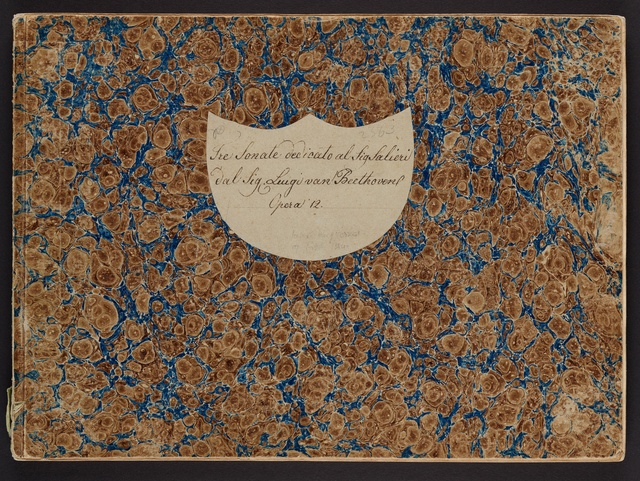 Tre Sonate dedicate al Sig Salieri
dal Sig. Luigi van Beethoven
Opera 12.